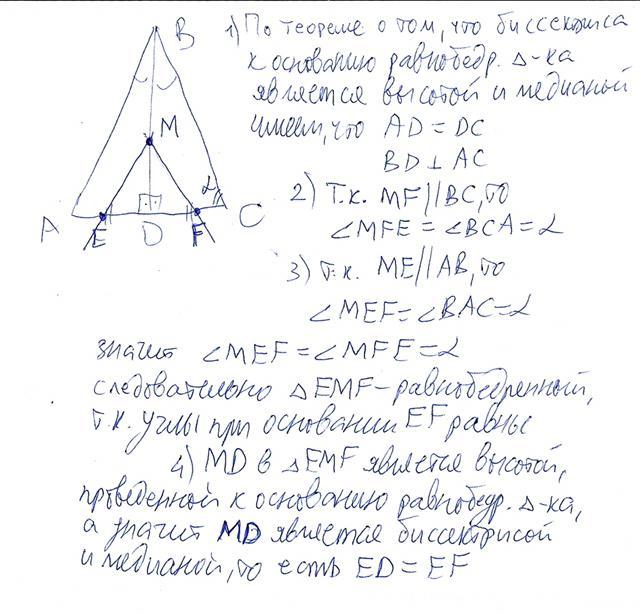 B
M
α
A
E
D
F
C
1) По теореме о том, что биссектриса
к основанию равнобедр. Δ-ка
является высотой и медианой
имеем, что AD = DC
BD ⊥ AC
2) Т.к. MF || BC, то
∠MFE = ∠BCA = α
3) т.к. ME || AB, то
∠MEF = ∠BAC = α
значит ∠MEF = ∠MFE = α
следовательно Δ EMF - равнобедренный,
т.к. углы при основании EF равны
4) MD в Δ EMF является высотой,
проведенной к основанию равнобедр. Δ-ка,
а значит MD является биссектрисой
и медианой, то есть ED = EF